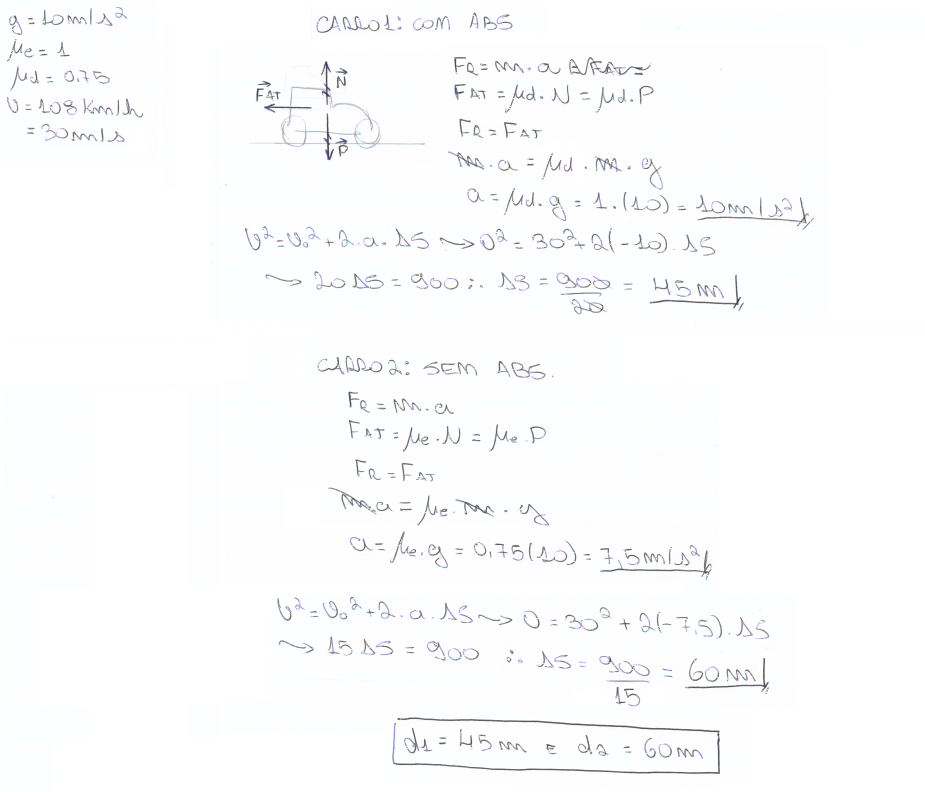 g = 10m/s²
μe = 1
μd = 0,75
V = 108 km/h
= 30m/s
CARRO1: COM ABS
N
FAT
P
FR = m. a
FAT = μd. N = μd. P
FR = FAT
m. a = μd. m. g
a = μd. g = 1. (10) = 10m/s²
V² = V₀² + 2. a. ΔS ⤳ 0² = 30² + 2(-10). ΔS
⤳ 20ΔS = 900 ∴ ΔS = 900/20 = 45m
CARRO2: SEM ABS.
FR = m. a
FAT = μe. N = μe. P
FR = FAT
m.a = μe. m. g
a = μe. g = 0,75(10) = 7,5m/s²
V² = V₀² + 2. a. ΔS ⤳ 0 = 30² + 2(-7,5). ΔS
⤳ 15ΔS = 900 ∴ ΔS = 900/15 = 60m
d1 = 45m e d2 = 60m